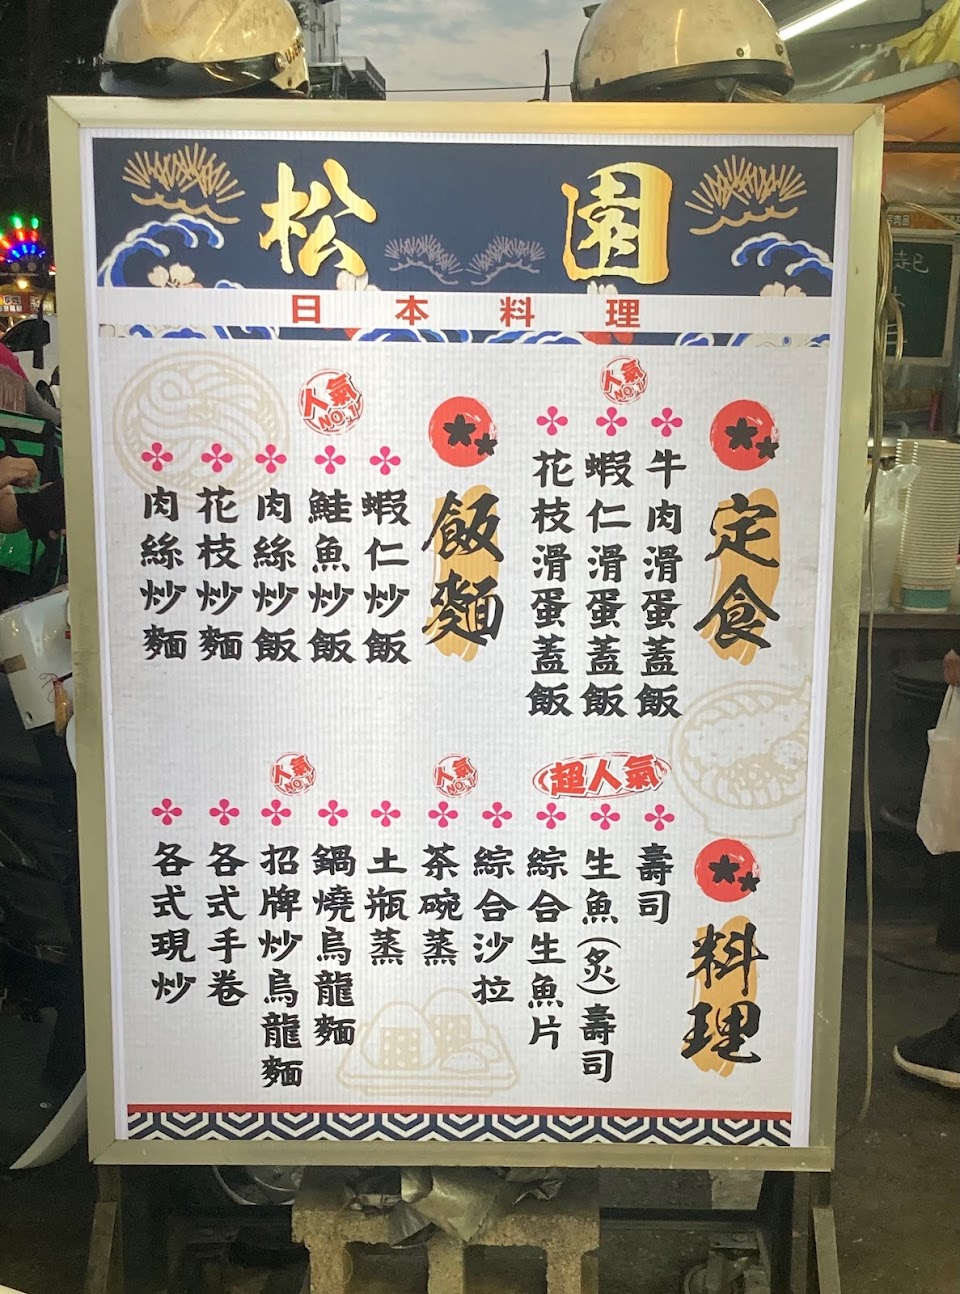 松園
日本料理
定食
牛肉滑蛋蓋飯
人氣NO.1
蝦仁滑蛋蓋飯
花枝滑蛋蓋飯
飯麵
蝦仁炒飯
人氣NO.1
鮭魚炒飯
肉絲炒飯
花枝炒麵
肉絲炒麵
料理
超人氣
壽司
生魚(炙)壽司
綜合生魚片
綜合沙拉
人氣NO.1
茶碗蒸
土瓶蒸
鍋燒烏龍麵
人氣NO.1
招牌炒烏龍麵
各式手卷
各式現炒